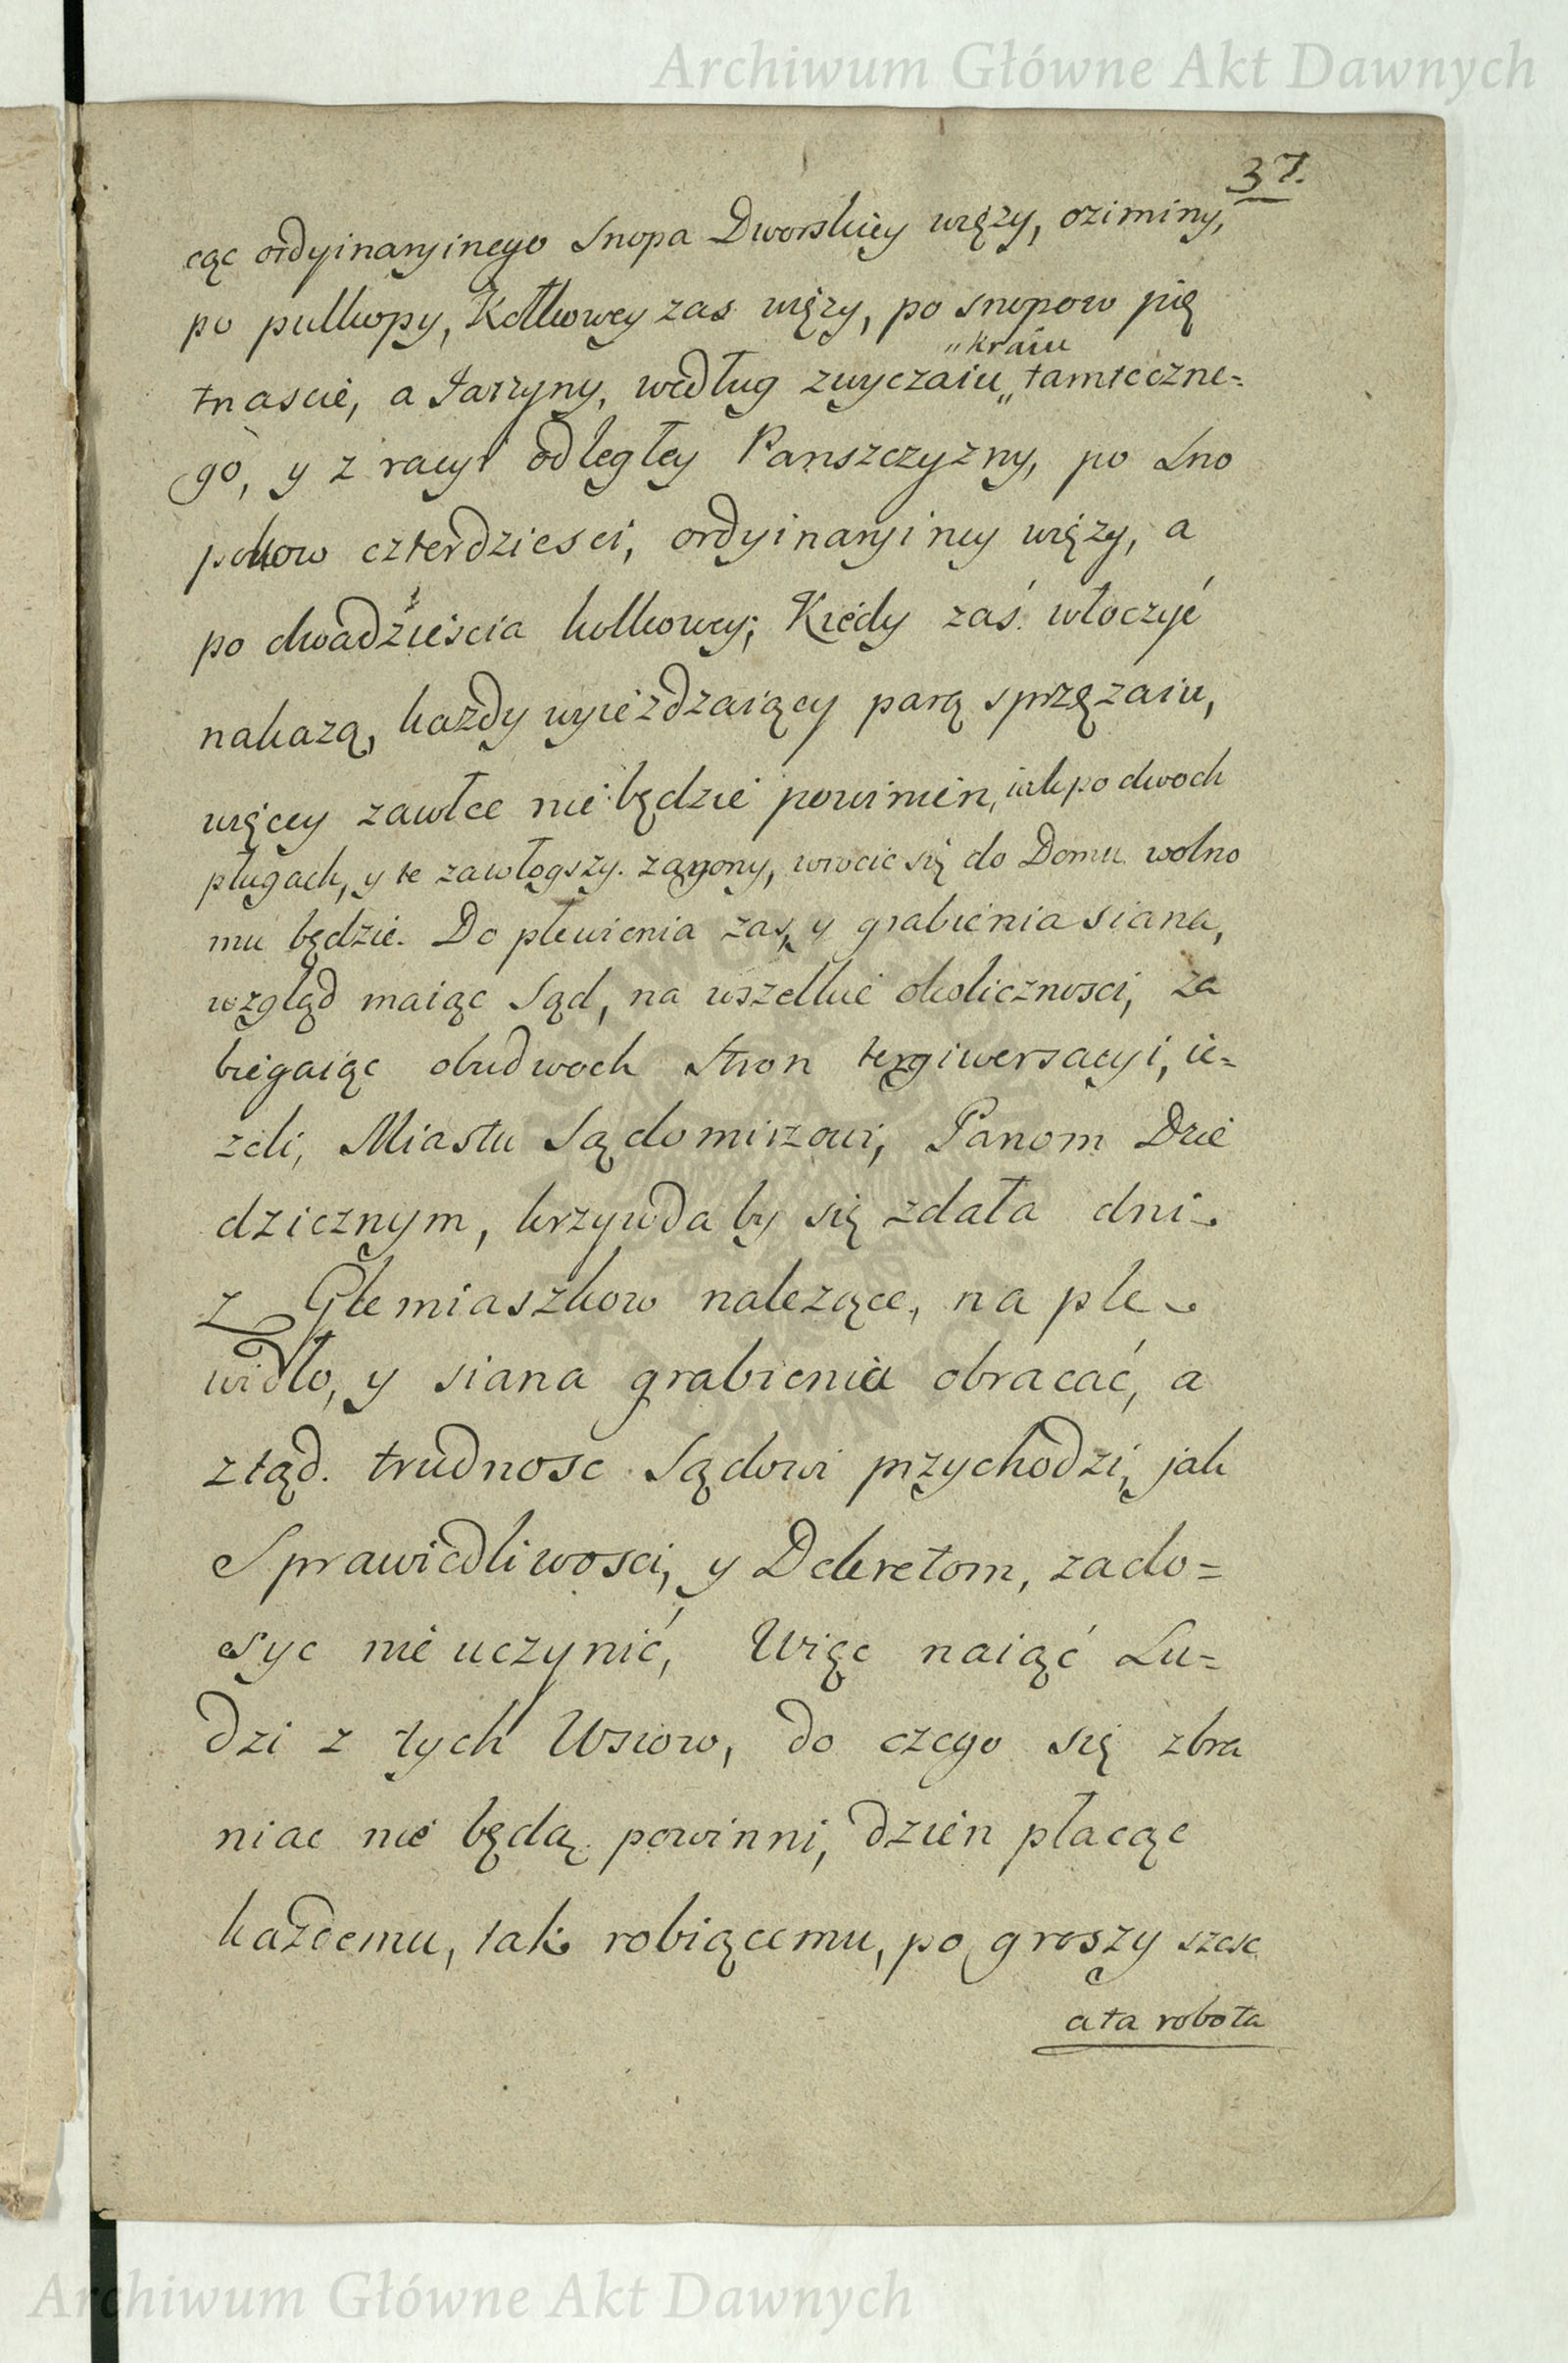 Archiwum Główne Akt Dawnych
37.
cąc ordyinaryinego Snopa Dworskiey więzy, oziminy,
po pułkopy, Kołkowey zas więzy, po snopow pię
"kraiu
tnascie, a Jarzyny, według zwyczaiu,, tamteczne=
go, y z racyi odległey Panszczyzny, po Sno
pkow czterdziesci, ordyinaryiney więzy, a
po dwadzieścia kołkowey; Kiedy zaś włoczyć
nakazą, kazdy wyieżdzaiący parą sprzęzaiu,
więcey zawłec nie będzie powinien, iak po dwoch
pługach, y te zawłogszy zagony, wrocic się do Domu wolno
mu będzie. Do plewienia zas, y grabienia siana,
wzgląd maiąc Sąd, na wszelkie okolicznosci, za
biegaiąc obudwoch Stron tergiwersacyi, ie=
zeli, Miastu Sądomirzowi, Panom Dzie
dzicznym, krzywda by się zdała dni
z Głemiaszkow nalezące, na ple
widło, y siana grabienia obracać, a
ztąd trudnosc Sądowi przychodzi, jak
Sprawiedliwosci, y Dekretom, zado=
syc nie uczynić, Więc naiąć Lu=
dzi z tych Wsiow, do czego się zbra
niac nie będą powinni, dzien płacąc
każdemu, tak robiącemu, po groszy szesc
a ta robota
Archiwum Główne Akt Dawnych